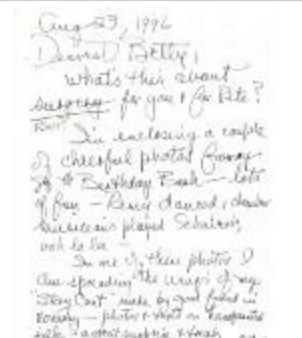 Aug 23, 1996
Dearest Betty,
What's this about
surgery for you & for Pete?
I'm enclosing a couple
of cheerful photos from
my Birthday Bash — lots
of fun — danced, chamber
musicians played Schubert,
ooh la la —
In one of these photos I
am spreading the wings of my
"Story Coat" made by good friend in
— photos & text on transparent
silk - a great surprise &